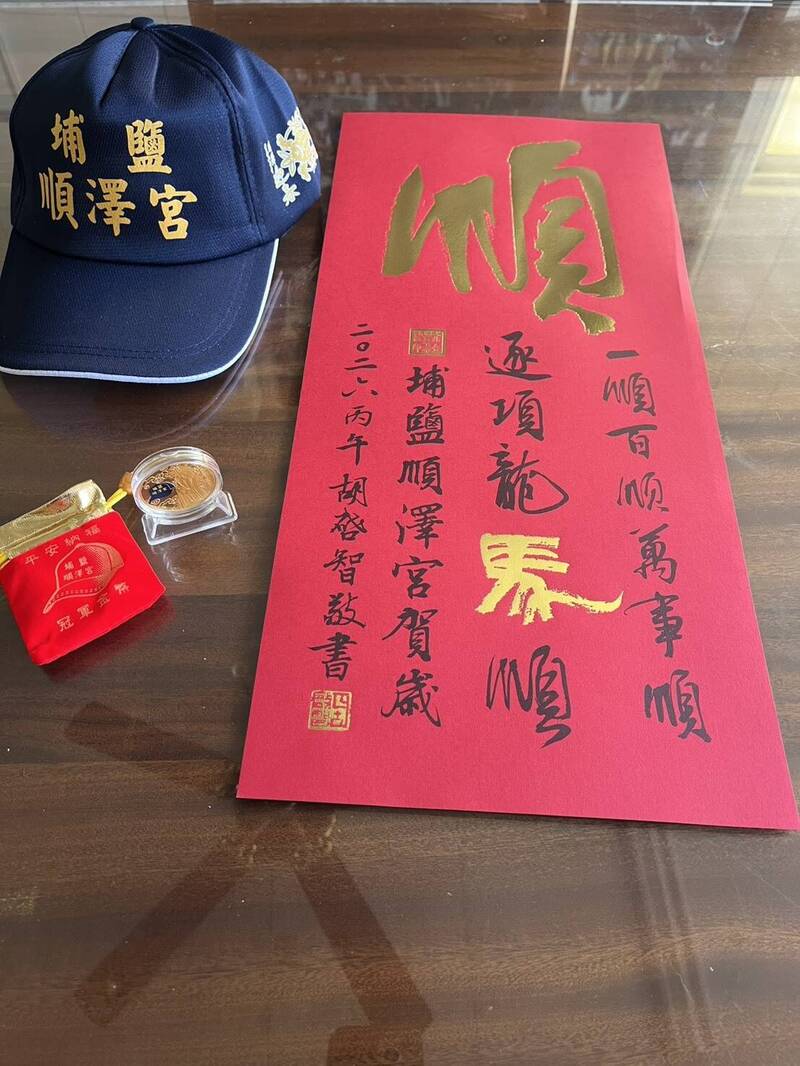 埔鹽
順澤宮
順
一順百順萬事順
逐項龍馬順
埔鹽順澤宮賀歲
二〇二六丙午胡啓智敬書
平安納福
埔鹽
順澤宮
冠軍金幣